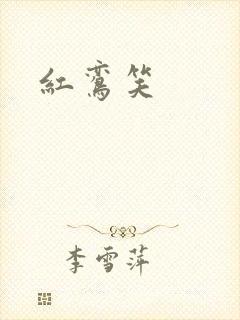 紅鸞笑
李雪萍